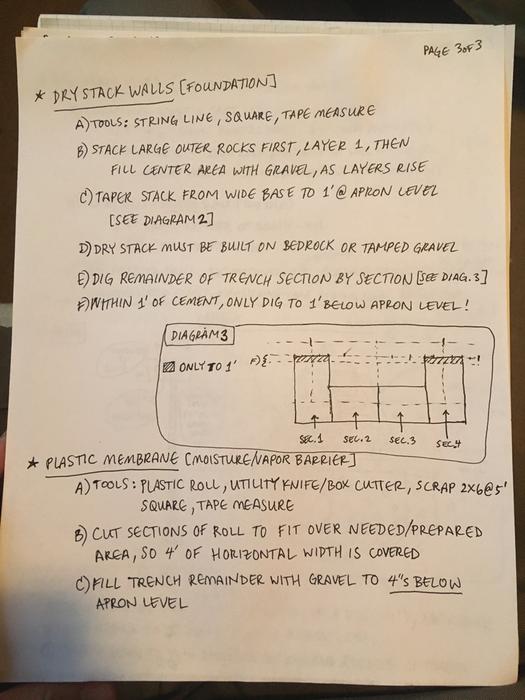 PAGE 3 OF 3
* DRY STACK WALLS [FOUNDATION]
A) TOOLS: STRING LINE, SQUARE, TAPE MEASURE
B) STACK LARGE OUTER ROCKS FIRST, LAYER 1, THEN
FILL CENTER AREA WITH GRAVEL, AS LAYERS RISE
C) TAPER STACK FROM WIDE BASE TO 1' @ APRON LEVEL
[SEE DIAGRAM 2]
D) DRY STACK MUST BE BUILT ON BEDROCK OR TAMPED GRAVEL
E) DIG REMAINDER OF TRENCH SECTION BY SECTION [SEE DIAG. 3]
F) WITHIN 1' OF CEMENT, ONLY DIG TO 1' BELOW APRON LEVEL!
DIAGRAM 3
ONLY TO 1'
F) {
1'
SEC. 1 SEC. 2 SEC. 3 SEC. 4
* PLASTIC MEMBRANE [MOISTURE/VAPOR BARRIER]
A) TOOLS: PLASTIC ROLL, UTILITY KNIFE/BOX CUTTER, SCRAP 2X6 @ 5'
SQUARE, TAPE MEASURE
B) CUT SECTIONS OF ROLL TO FIT OVER NEEDED/PREPARED
AREA, SO 4' OF HORIZONTAL WIDTH IS COVERED
C) FILL TRENCH REMAINDER WITH GRAVEL TO 4"S BELOW
APRON LEVEL